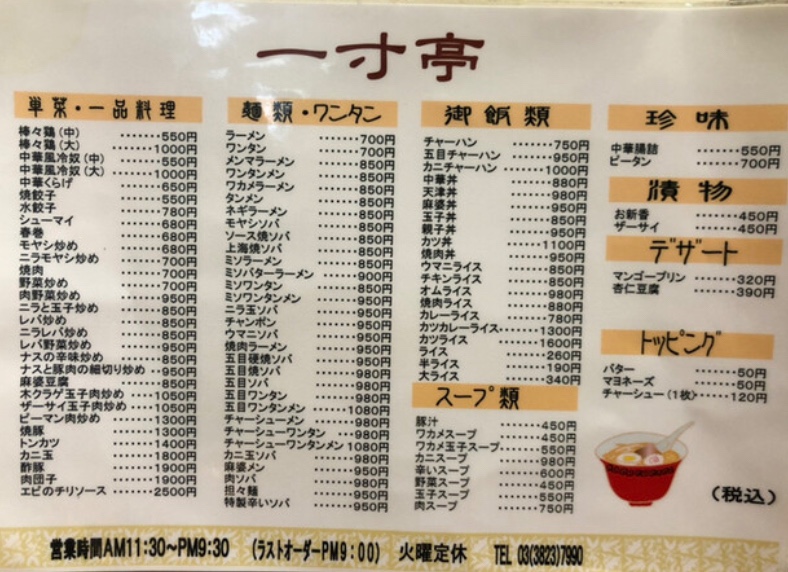 一寸亭
単菜・一品料理
棒々鶏(中)・・・・・・・550円
棒々鶏(大)・・・・・・・1000円
中華風冷奴(中)・・・・・・550円
中華風冷奴(大)・・・・・1000円
中華くらげ・・・・・・・650円
焼餃子・・・・・・・550円
水餃子・・・・・・・780円
シューマイ・・・・・・・680円
春巻・・・・・・・680円
モヤシ炒め・・・・・・・680円
ニラモヤシ炒め・・・・・・・700円
焼肉・・・・・・・700円
野菜炒め・・・・・・・700円
肉野菜炒め・・・・・・・950円
ニラと玉子炒め・・・・・・・850円
レバ炒め・・・・・・・850円
ニラレバ炒め・・・・・・・850円
レバ野菜炒め・・・・・・・950円
ナスの辛味炒め・・・・・・・850円
ナスと豚肉の細切り炒め・・950円
麻婆豆腐・・・・・・・850円
木クラゲ玉子肉炒め・・・・1050円
ザーサイ玉子肉炒め・・・・1050円
ピーマン肉炒め・・・・・・1300円
焼豚・・・・・・・1300円
トンカツ・・・・・・・1400円
カニ玉・・・・・・・1800円
酢豚・・・・・・・1900円
肉団子・・・・・・・1900円
エビのチリソース・・・・・・・2500円
麺類・ワンタン
ラーメン・・・・・・・700円
ワンタン・・・・・・・700円
メンマラーメン・・・・・・・850円
ワンタンメン・・・・・・・850円
ワカメラーメン・・・・・・・850円
タンメン・・・・・・・850円
ネギラーメン・・・・・・・850円
モヤシソバ・・・・・・・850円
ソース焼ソバ・・・・・・・850円
上海焼ソバ・・・・・・・850円
ミソラーメン・・・・・・・850円
ミソバターラーメン・・・・・900円
ミソワンタン・・・・・・・850円
ミソワンタンメン・・・・・・950円
ニラ玉ソバ・・・・・・・950円
チャンポン・・・・・・・950円
ウマニソバ・・・・・・・950円
焼肉ラーメン・・・・・・・950円
五目硬焼ソバ・・・・・・・950円
五目焼ソバ・・・・・・・980円
五目ソバ・・・・・・・980円
五目ワンタン・・・・・・・980円
五目ワンタンメン・・・・・1080円
チャーシューメン・・・・・・980円
チャーシューワンタン・・・980円
チャーシューワンタンメン 1080円
カニ玉ソバ・・・・・・・980円
麻婆メン・・・・・・・950円
肉ソバ・・・・・・・980円
担々麺・・・・・・・950円
特製辛いソバ・・・・・・・950円
御飯類
チャーハン・・・・・・・750円
五目チャーハン・・・・・・・950円
カニチャーハン・・・・・・・1000円
中華丼・・・・・・・880円
天津丼・・・・・・・980円
麻婆丼・・・・・・・950円
玉子丼・・・・・・・850円
親子丼・・・・・・・950円
カツ丼・・・・・・・1100円
焼肉丼・・・・・・・950円
ウマニライス・・・・・・・850円
チキンライス・・・・・・・850円
オムライス・・・・・・・980円
焼肉ライス・・・・・・・880円
カレーライス・・・・・・・780円
カツカレーライス・・・・・1300円
カツライス・・・・・・・1600円
ライス・・・・・・・260円
半ライス・・・・・・・190円
大ライス・・・・・・・340円
スープ類
豚汁・・・・・・・450円
ワカメスープ・・・・・・・450円
ワカメ玉子スープ・・・・・550円
カニスープ・・・・・・・980円
辛いスープ・・・・・・・600円
野菜スープ・・・・・・・450円
玉子スープ・・・・・・・550円
肉スープ・・・・・・・750円
珍味
中華腸詰・・・・・・・550円
ピータン・・・・・・・700円
漬物
お新香・・・・・・・450円
ザーサイ・・・・・・・450円
デザート
マンゴープリン・・・・・・・320円
杏仁豆腐・・・・・・・390円
トッピング
バター・・・・・・・50円
マヨネーズ・・・・・・・50円
チャーシュー(1枚)・・・・120円
(税込)
営業時間AM11:30~PM9:30 (ラストオーダーPM9:00) 火曜定休 TEL 03(3823)7990